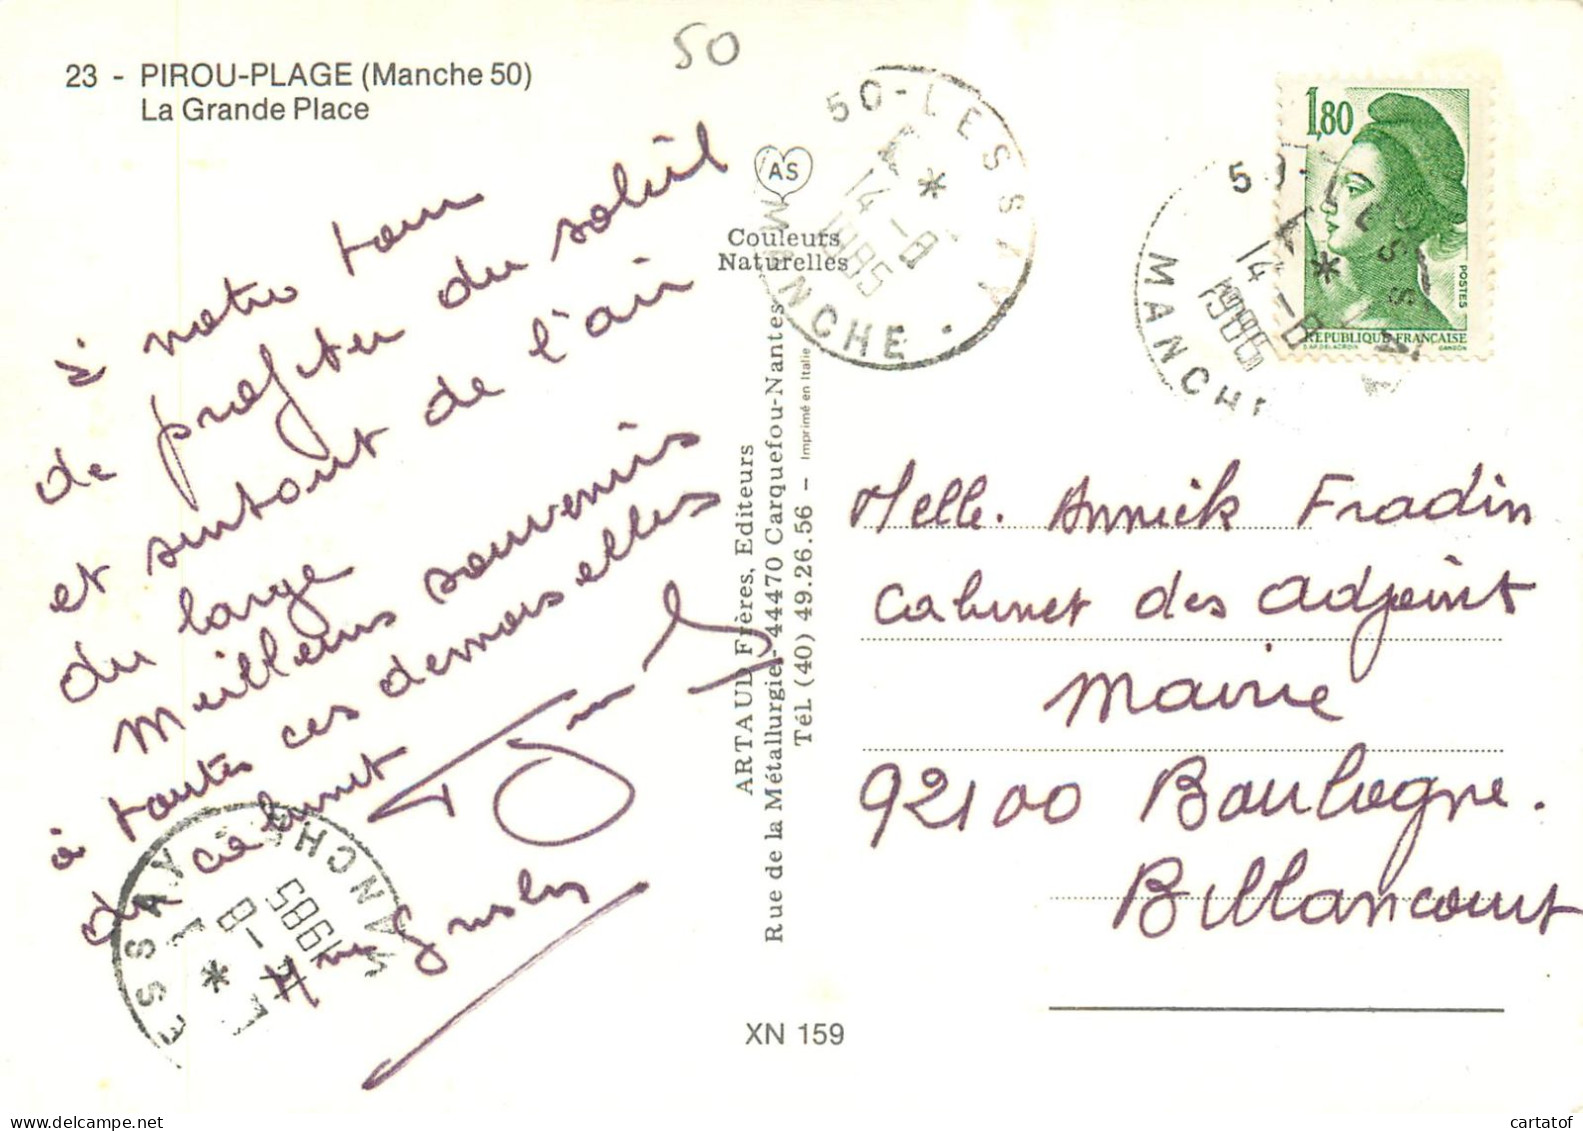 50
23 - PIROU-PLAGE (Manche 50)
La Grande Place
à notre tour
de profiter du soleil
et surtout de l'air
du large
Meilleurs souvenirs
à toutes ces demoiselles
du cabinet
Mme
AS
Couleurs
Naturelles
ARTAUD Frères, Editeurs
Rue de la Métallurgie - 44470 Carquefou-Nantes
Tél. (40) 49.26.56 - Imprimé en Italie
XN 159
50-LESSAY
14-8
1985
MANCHE
1,80
POSTES
REPUBLIQUE FRANÇAISE
D'AP. DELACROIX GANDON
50-LESSAY
14-8
MANCHE
Melle. Annick Fradin
Cabinet des adjoint
Mairie
92100 Boulogne.
Billancourt
LESSAY
-8
1985
MANCHE
cartatof